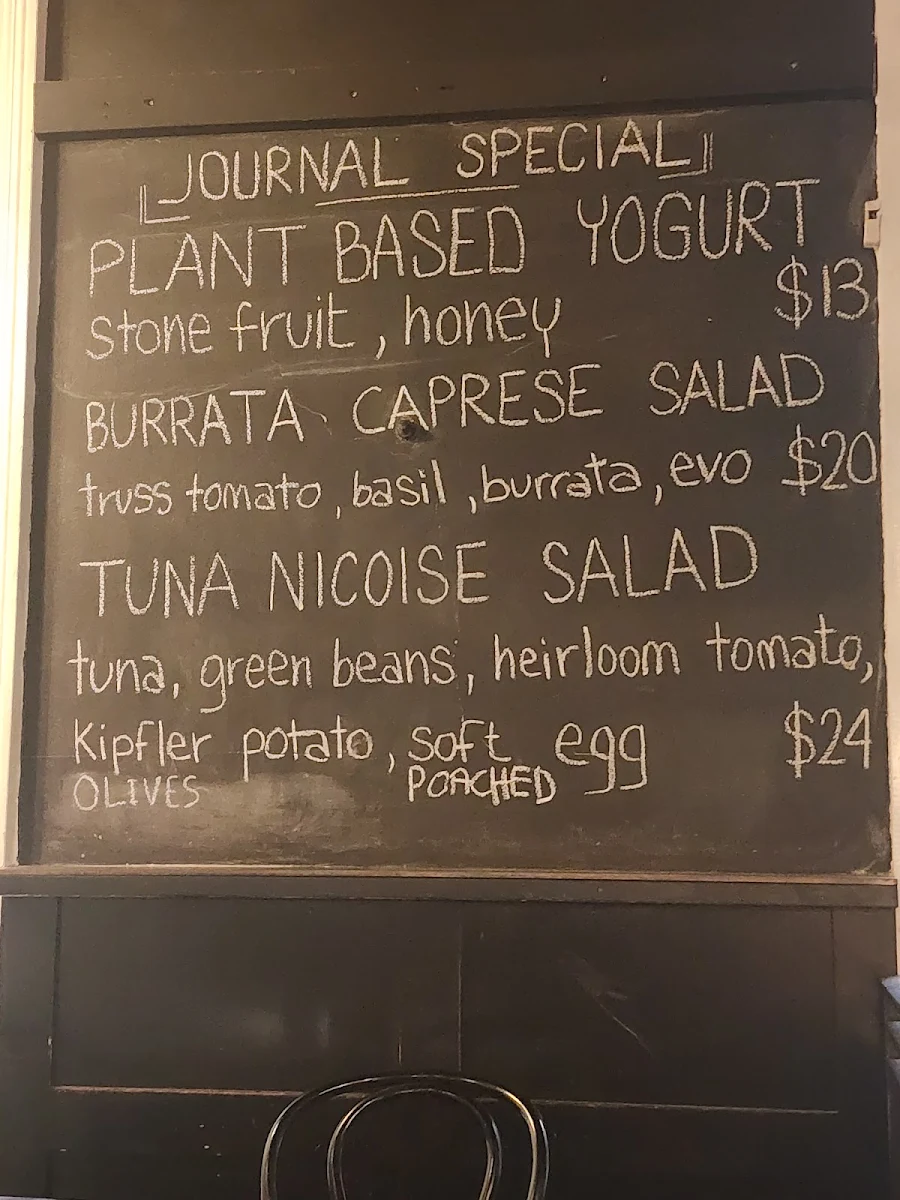 JOURNAL SPECIAL
PLANT BASED YOGURT
stone fruit, honey $13
BURRATA CAPRESE SALAD
truss tomato, basil, burrata, evo $20
TUNA NICOISE SALAD
tuna, green beans, heirloom tomato,
Kipfler potato, soft egg $24
OLIVES POACHED